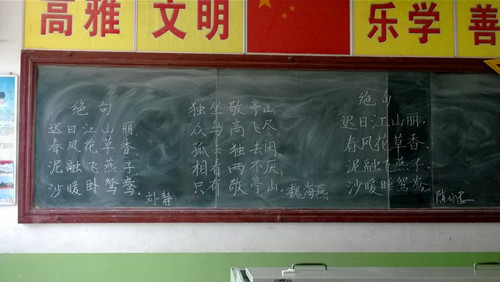 高雅 文明 乐学 善
绝句
迟日江山丽
春风花草香
泥融飞燕子
沙暖卧鸳鸯.
刘静
独坐敬亭山
众鸟高飞尽
孤云独去闲
相看两不厌,
只有敬亭山.
魏海燕
绝句
迟日江山丽.
春风花草香.
泥融飞燕子
沙暖卧鸳鸯